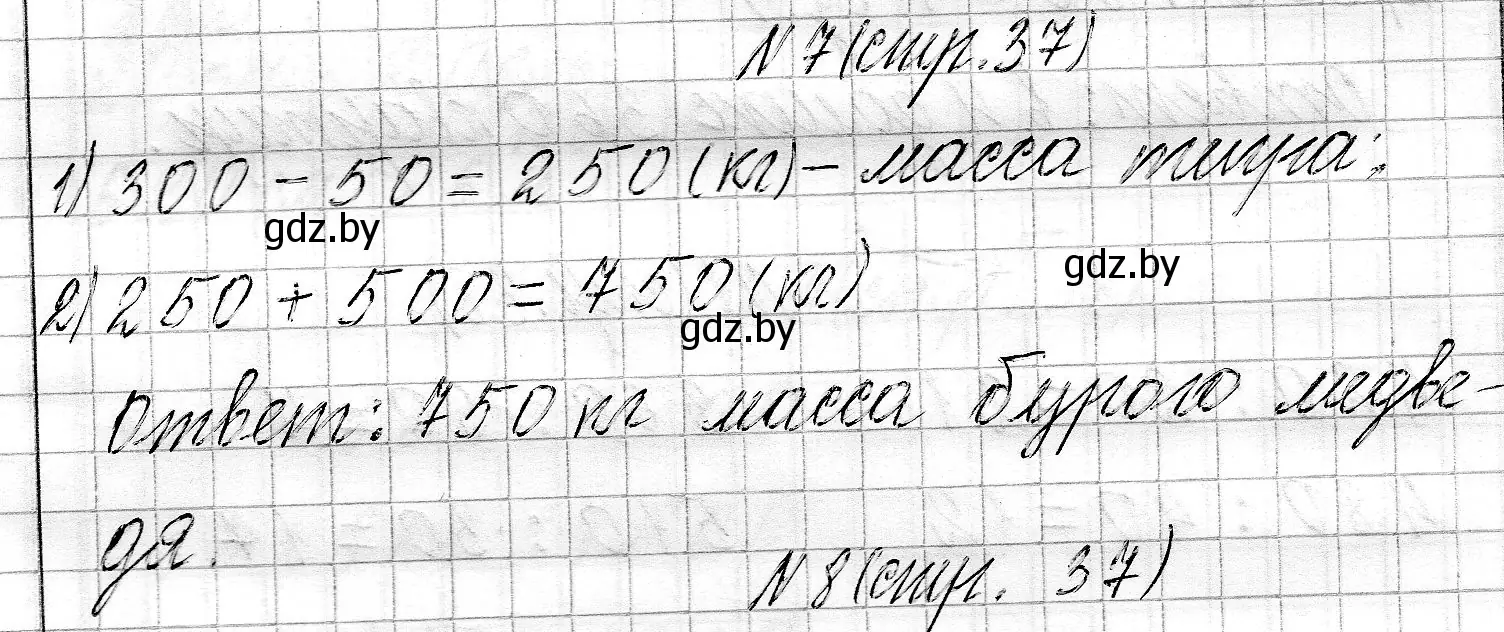 N 7 (стр. 37)
1) 300 - 50 = 250 (кг) - масса тигра;
gdz.by
2) 250 + 500 = 750 (кг)
gdz.by
gdz.by
Ответ: 750 кг масса бурого медве-
дя.
N 8 (стр. 37)